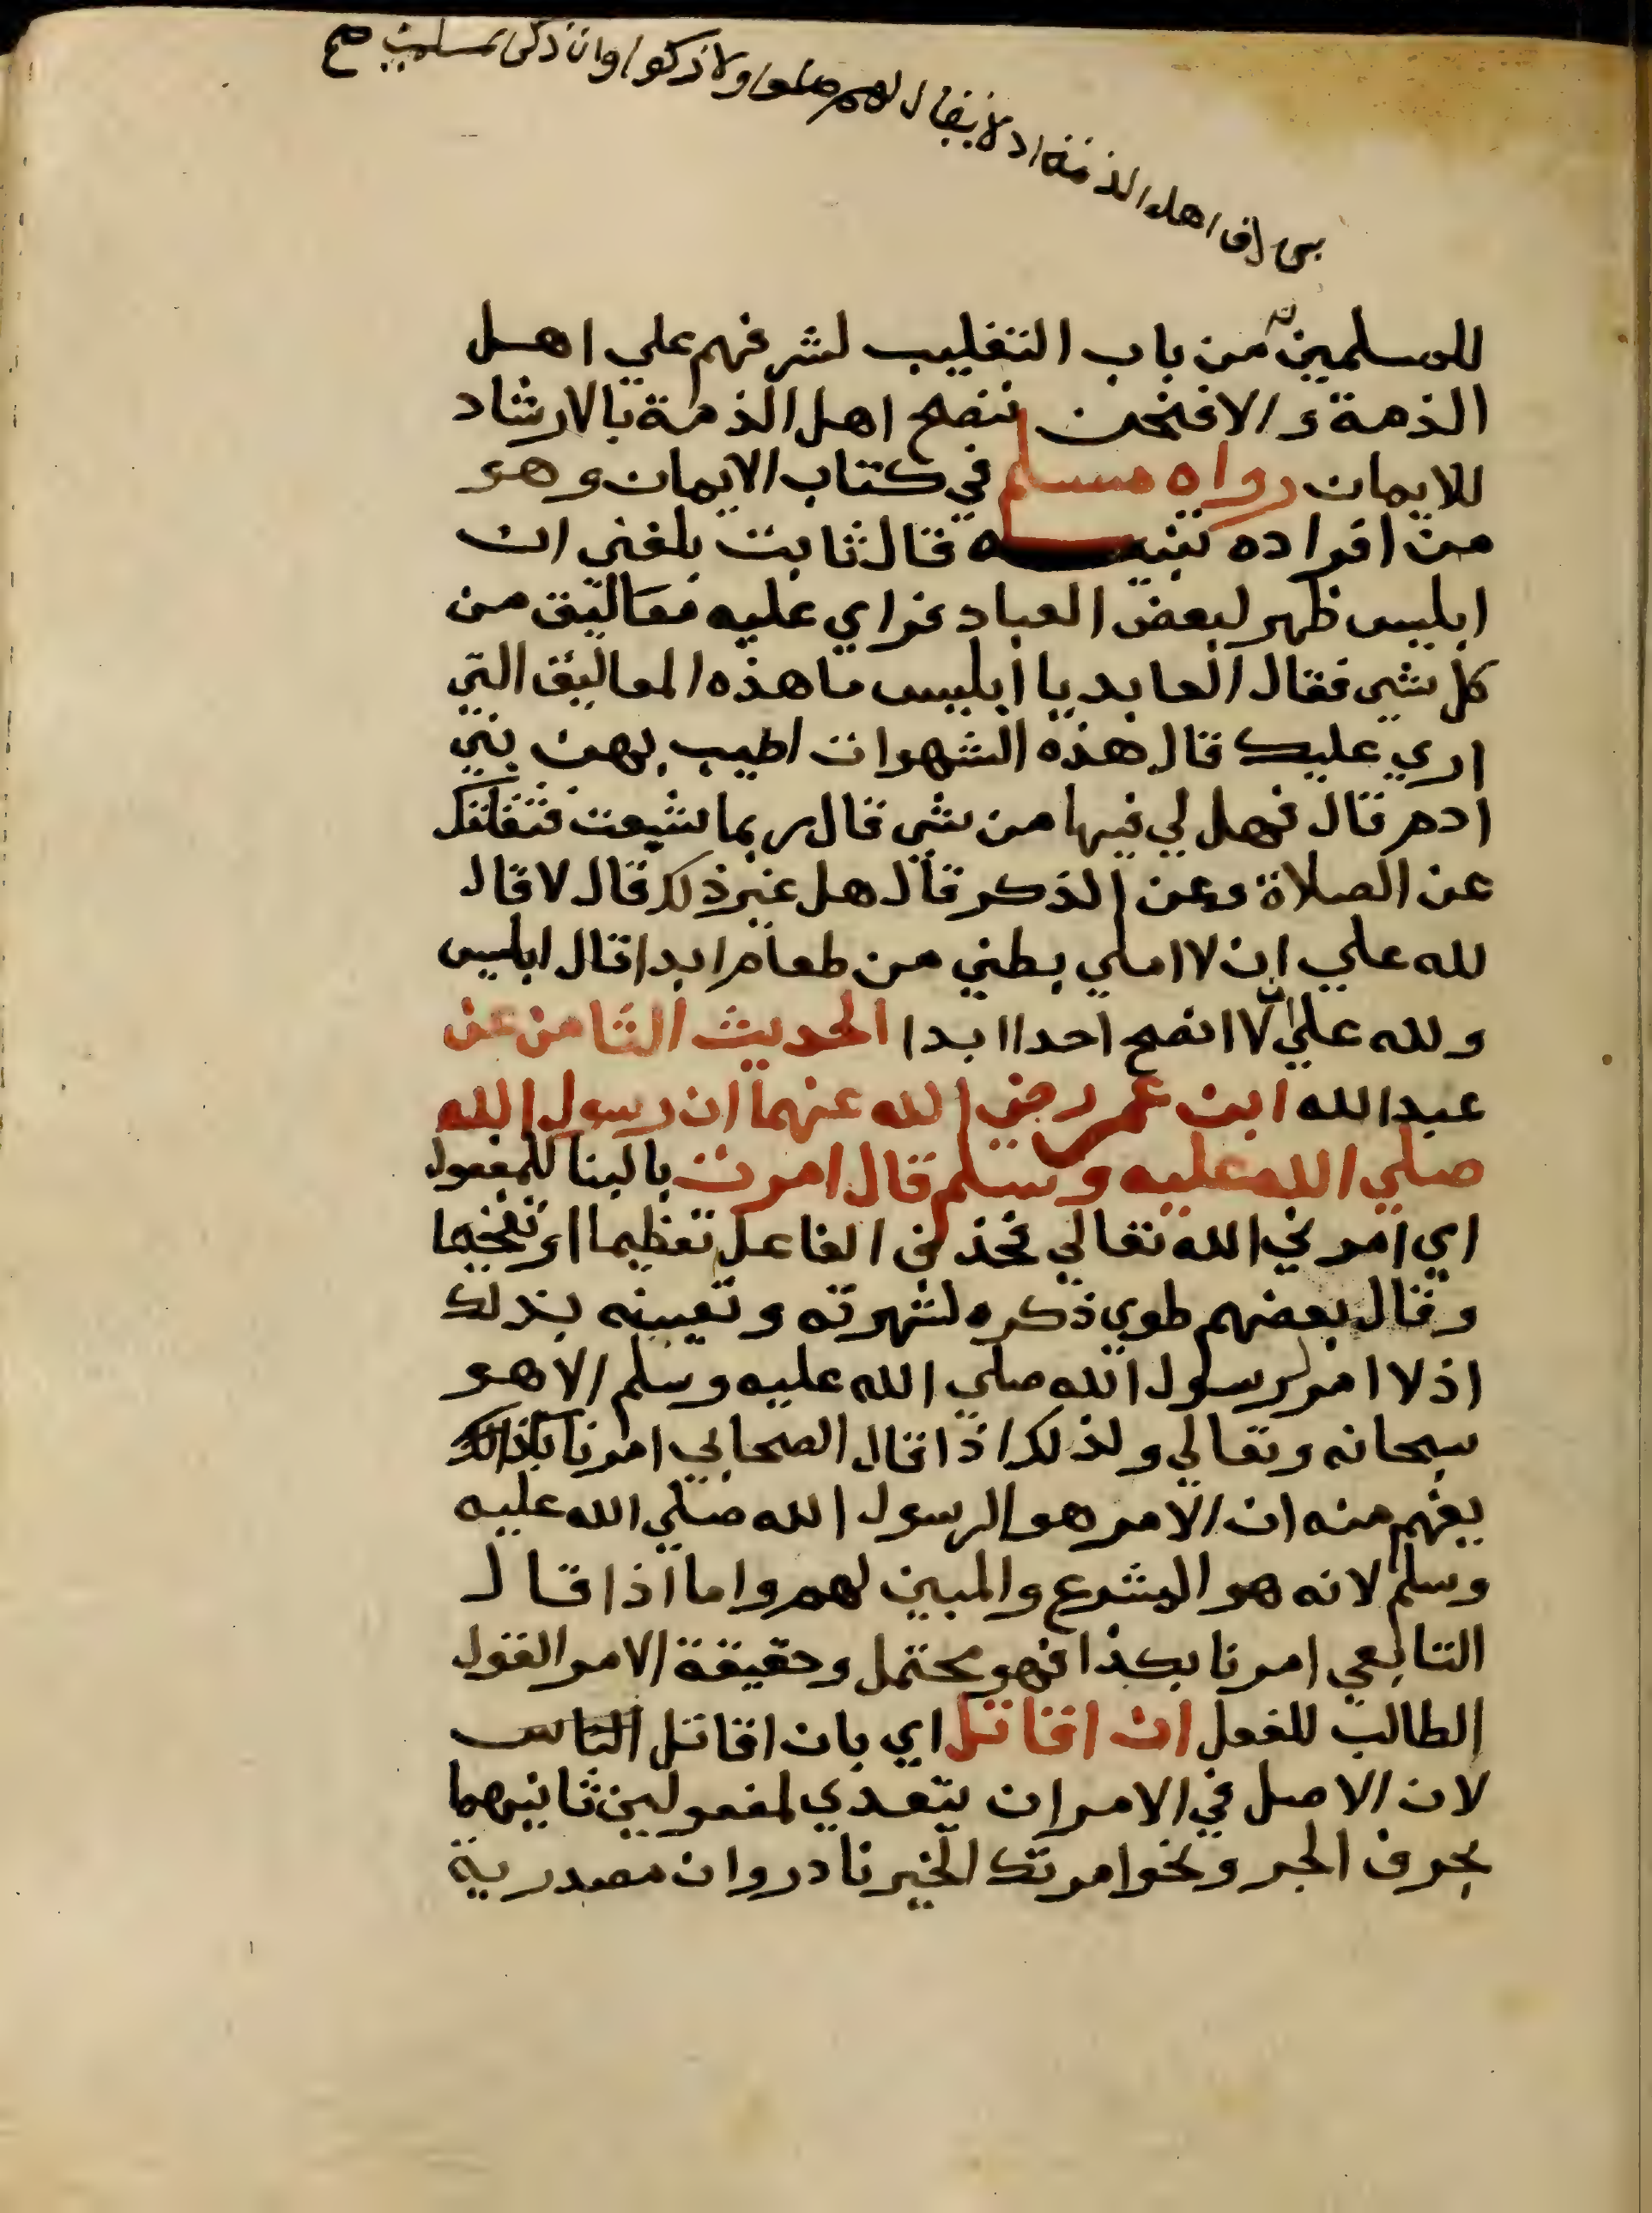 اهل الذمة اذ لا يقال لهم صلوا ولا زكوا وان ذكر صح
للمسلمين من باب التغليب لشرفهم علي اهل
الذمة والا فنحن ننصح اهل الذمة بالارشاد
للايمان رواه مسلم في كتاب الايمان وهو
من افراده تنبيه قال ثابت بلغني ان
ابليس ظهر لبعض العباد فراي عليه معاليق من
كل شي فقال العابد يا ابليس ما هذه المعاليق التي
اري عليك قال هذه الشهوات اطيب بهن بني
ادم قال فهل لي فيها من شي قال ربما شبعت فثقلتك
عن الصلاة وعن الذكر قال هل غير ذلك قال لا قال
لله علي ان لا املي بطني من طعام ابدا قال ابليس
ولله علي ان لا انصح احدا ابدا الحديث الثامن عن
عبد الله ابن عمر رضي الله عنهما ان رسول الله
صلي الله عليه وسلم قال امرت بالبنا للمفعول
اي امرني الله تعالي فحذف الفاعل تعظيما او تفخيما
وقال بعضهم طوي ذكره لشهرته وتعيينه بذلك
اذ لا امر لرسول الله صلي الله عليه وسلم الا هو
سبحانه وتعالي ولذلك اذا قال الصحابي امرنا بكذا
يفهم منه ان الامر هو الرسول الله صلي الله عليه
وسلم لانه هو المشرع والمبين لهم واما اذا قال
التابعي امرنا بكذا فهو محتمل وحقيقة الامر القول
الطالب للفعل ان اقاتل اي بان اقاتل الناس
لان الاصل في الامر ان يتعدي لمفعولين ثانيهما
بحرف الجر ونحو امرتك الخير نادر وان مصدرية